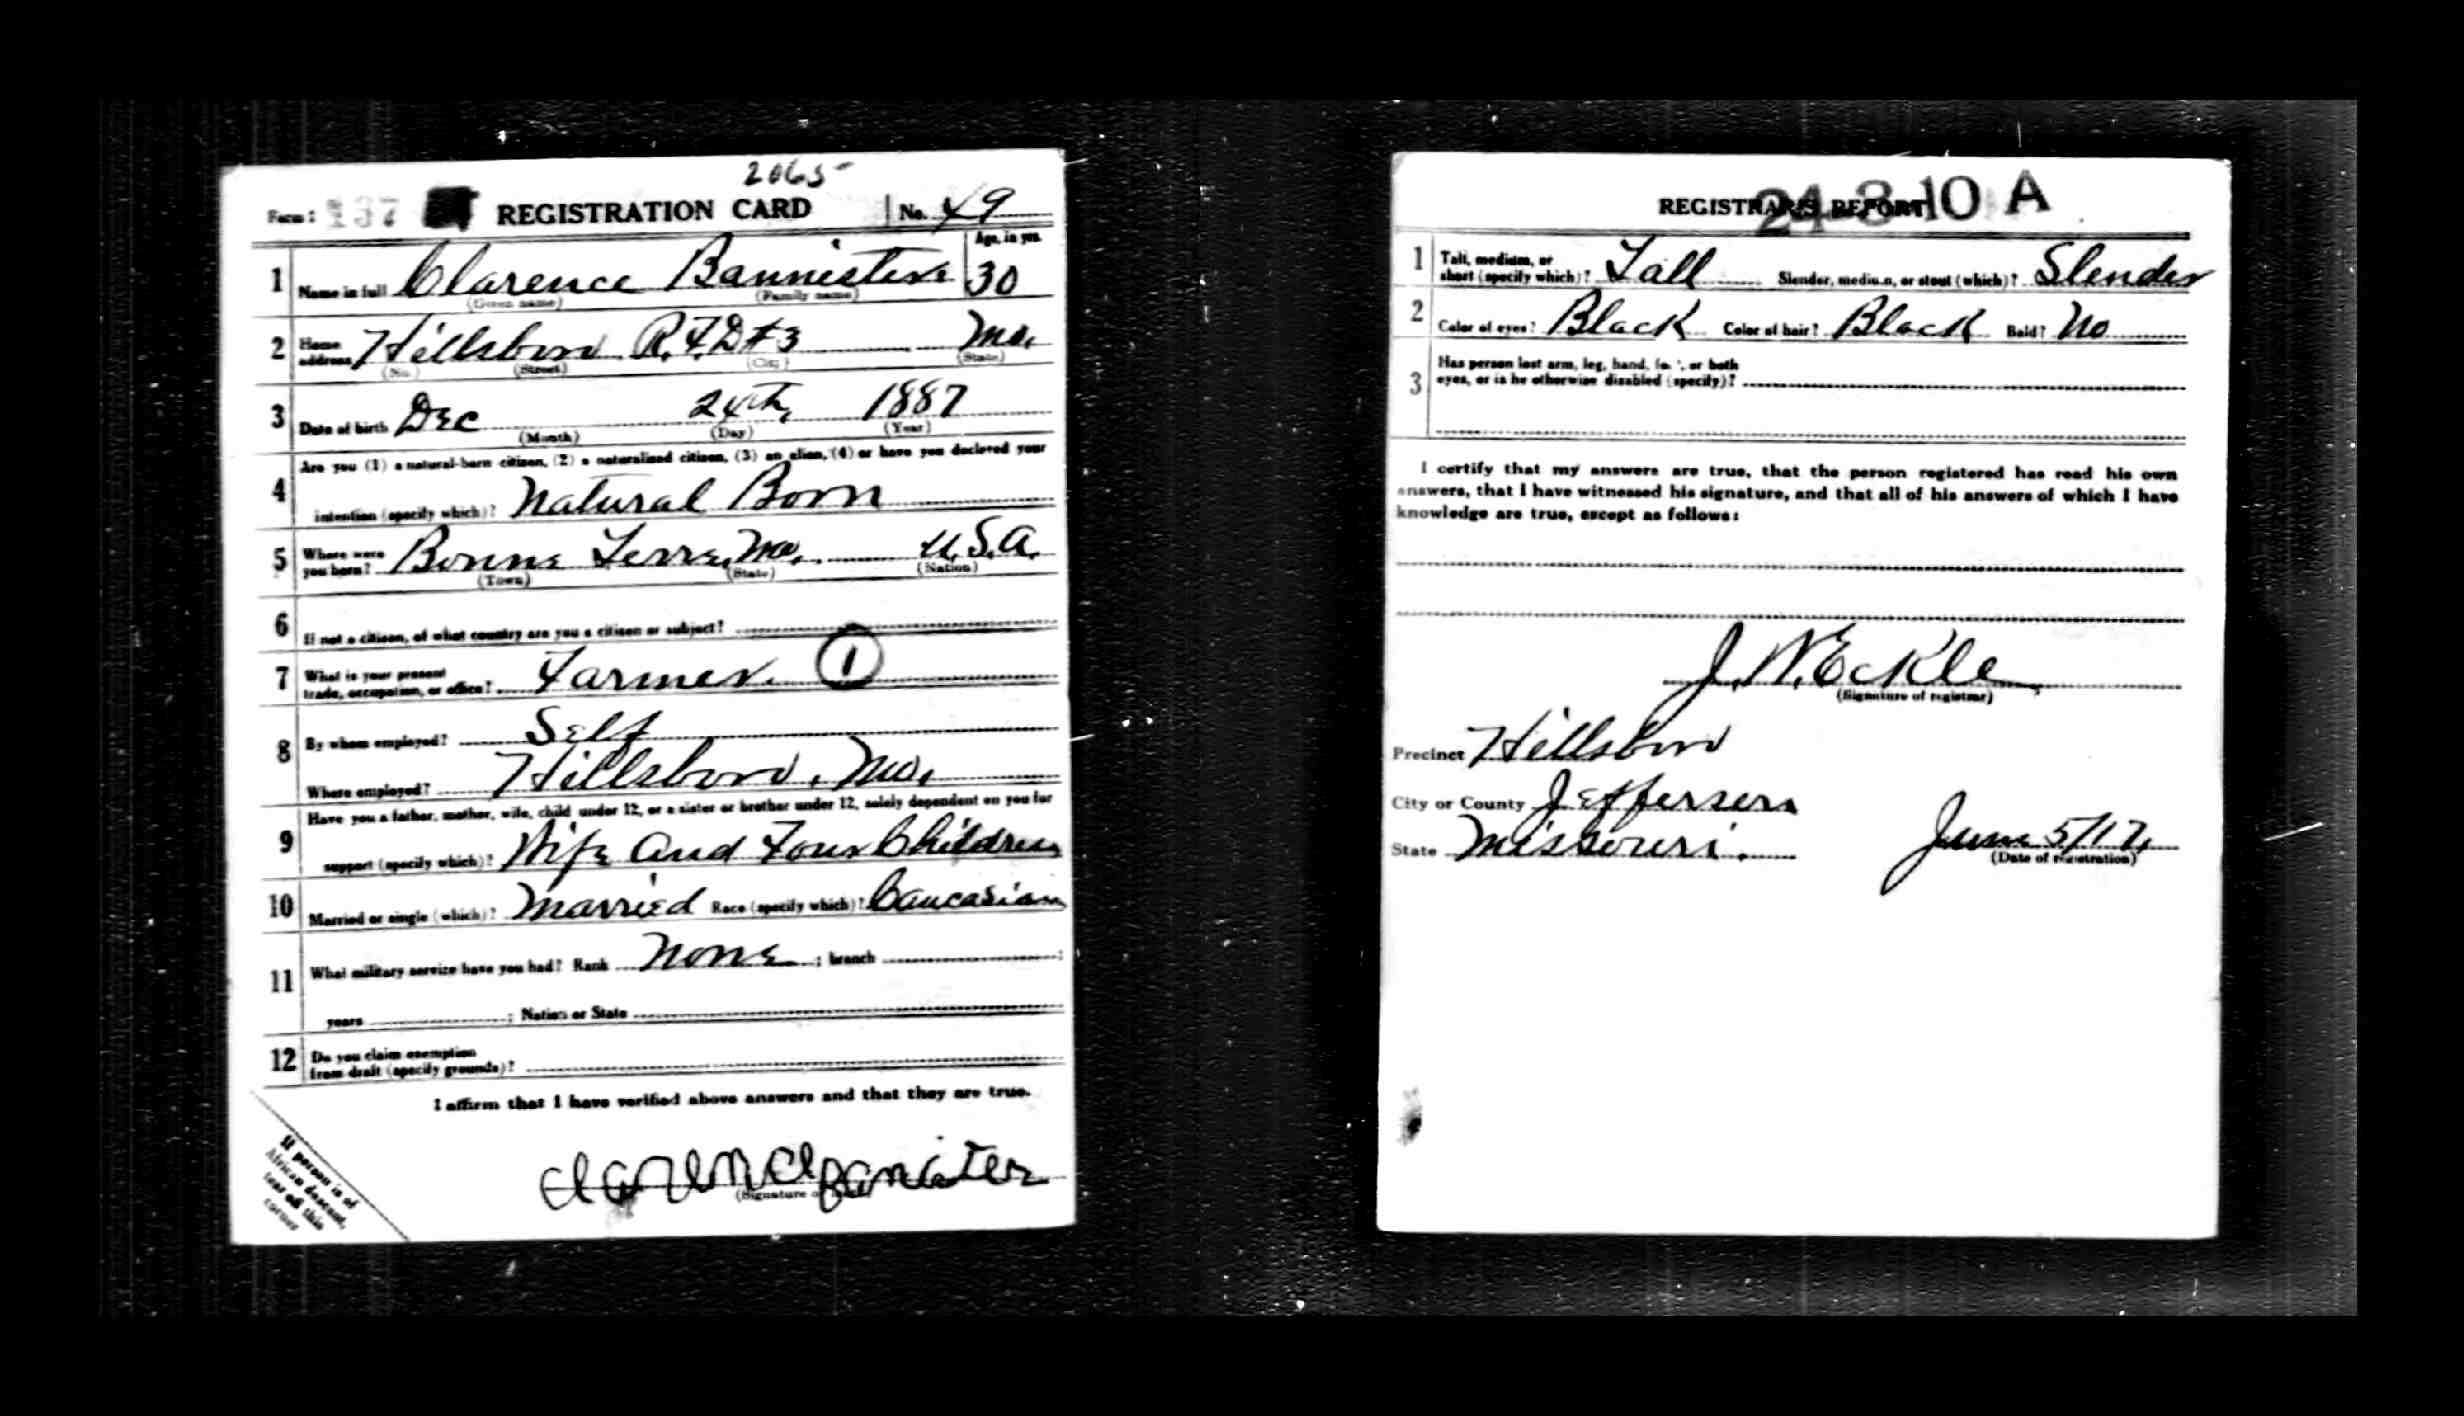 2065
Form 1 137 REGISTRATION CARD No. 49
1 Name in full Clarence Bannister Age, in yrs. 30
(Given name) (Family name)
2 Home address Hillsboro R.F.D #3 Mo.
(No.) (Street) (City) (State)
3 Date of birth Dec 24th, 1887
(Month) (Day) (Year)
4 Are you (1) a natural-born citizen, (2) a naturalized citizen, (3) an alien, (4) or have you declared your
intention (specify which)? Natural Born
5 Where were you born? Bonne Terre, Mo. U.S.A.
(Town) (State) (Nation)
6 If not a citizen, of what country are you a citizen or subject?
7 What is your present
trade, occupation, or office? Farmer. 1
8 By whom employed? Self
Where employed? Hillsboro, Mo.
9 Have you a father, mother, wife, child under 12, or a sister or brother under 12, solely dependent on you for
support (specify which)? Wife and Four Children
10 Married or single (which)? Married Race (specify which)? Caucasian
11 What military service have you had? Rank None ; branch ;
years ; Nation or State
12 Do you claim exemption
from draft (specify grounds)?
I affirm that I have verified above answers and that they are true.
Clarence Banister
(Signature or
If person is of
African descent,
tear off this
corner
REGISTRAR'S REPORT 24-3-10 A
1 Tall, medium, or
short (specify which)? Tall Slender, medium, or stout (which)? Slender
2 Color of eyes? Black Color of hair? Black Bald? No
3 Has person lost arm, leg, hand, foot, or both
eyes, or is he otherwise disabled (specify)?
I certify that my answers are true, that the person registered has read his own
answers, that I have witnessed his signature, and that all of his answers of which I have
knowledge are true, except as follows:
J. W. Eckle
(Signature of registrar)
Precinct Hillsboro
City or County Jefferson
State Missouri. June 5/17,
(Date of registration)